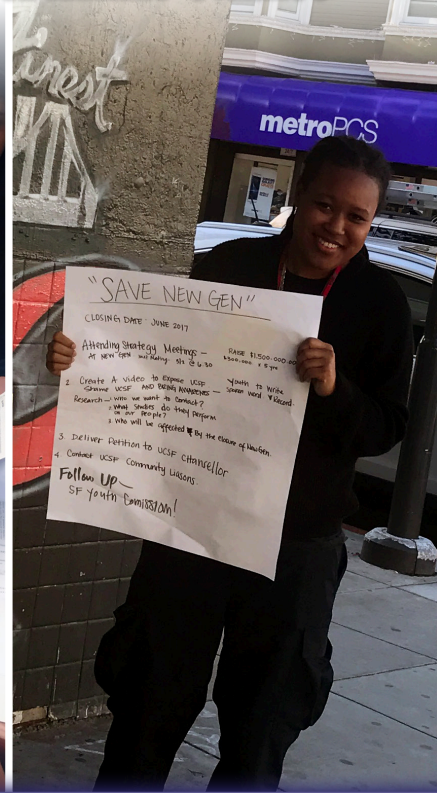 Finest
metroPCS
"SAVE NEW GEN"
CLOSING DATE: JUNE 2017
Attending Strategy Meetings –
AT NEW GEN next Meeting: 5/2 @ 6:30
RAISE $1,500.000.00
$300,000 x 5 yrs
2. Create A Video to Expose UCSF
Shame UCSF AND BRING AWARENESS –
Youth to Write
Spoken Word & Record
Research – who we want to Contact?
2 What studies do they perform
on our people?
3 Who will be affected By the closure of New Gen.
3. Deliver Petition to UCSF Chancellor
4. Contact UCSF Community Liasons.
Follow Up –
SF Youth Comission!